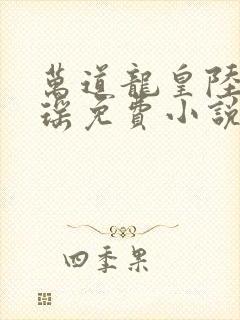 萬道龍皇陸
瑤免費小說
四季果